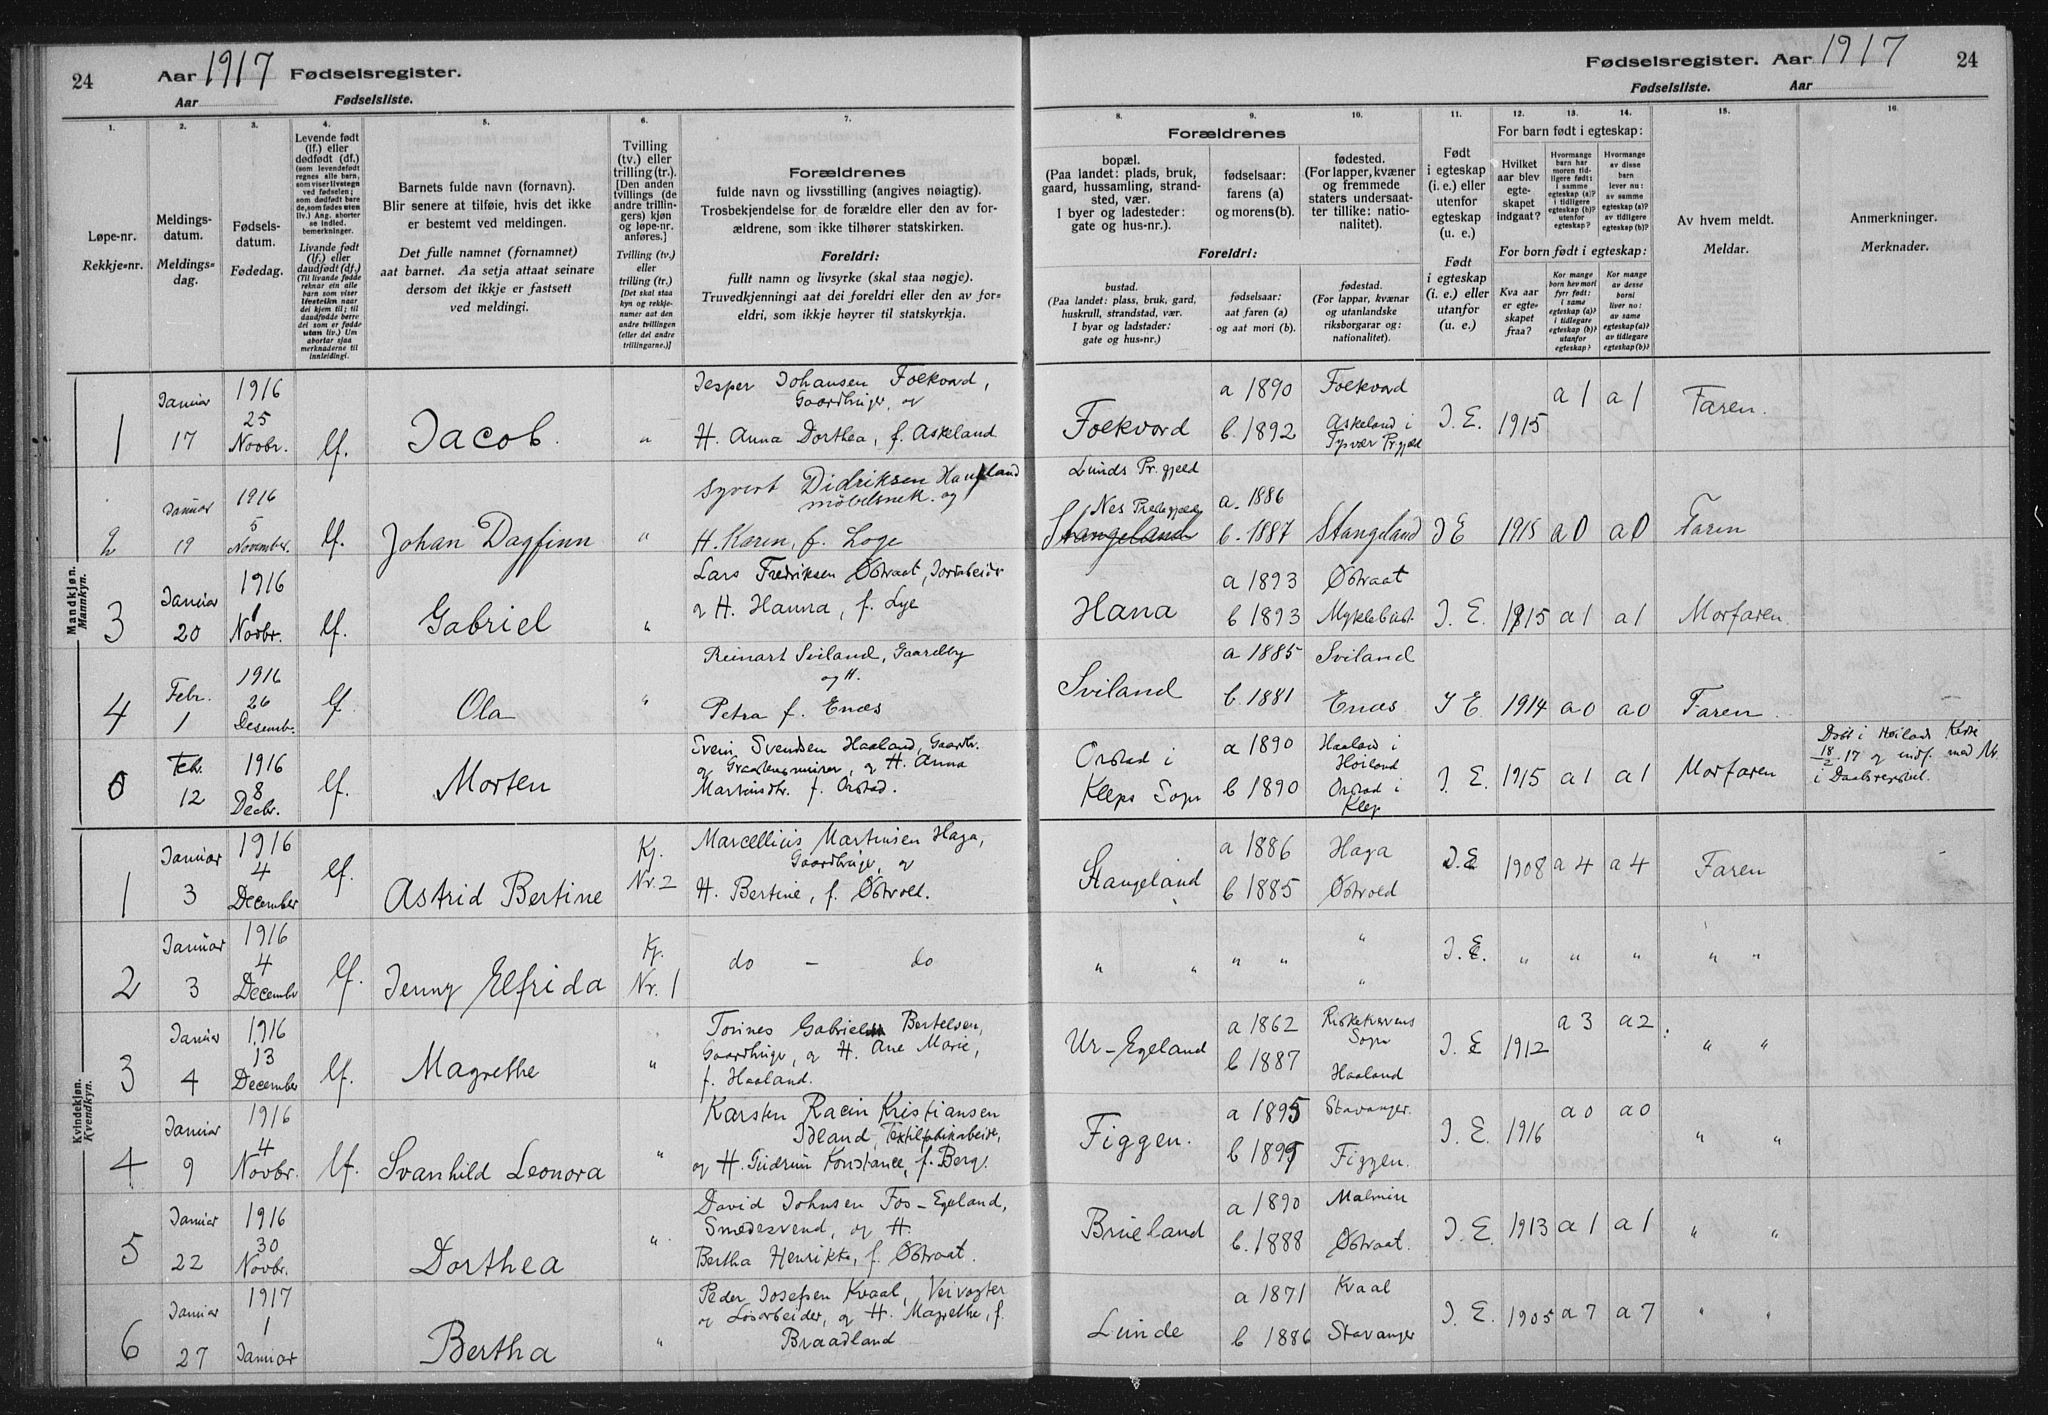 24 Aar 1917 Fødselsregister.
Aar Fødselsliste.
Fødselsregister. Aar 1917 24
Fødselsliste. Aar
1. 2. 3. 4. 5. 6. 7. 8. 9. 10. 11. 12. 13. 14. 15. 16.
Løpe-nr.
Rekkje-nr.
Meldings-
datum.
Meldings-
dag.
Fødsels-
datum.
Fødedag.
Levende født
(lf.) eller
dødfødt (df.)
(som levendefødt
regnes alle barn,
som viser livstegn
ved fødselen;
som dødfødt bare
de, som fødes uten
liv.) Ang. aborter
se indled.
bemerkninger.
Livande født
(lf.) eller
daudfødt (df.)
(Til livande fødde
reknar ein alle
barn som viser
livsteikn naar
dei kjem til; til
daudfødde berre
dei som er fødde
utan liv.) Um
abortar sjaa
merknaderne til
innleidingi.
Barnets fulde navn (fornavn).
Blir senere at tilføie, hvis det ikke
er bestemt ved meldingen.
Det fulle namnet (fornamnet)
aat barnet. Aa setja attaat seinare
dersom det ikkje er fastsett
ved meldingi.
Tvilling
(tv.) eller
trilling (tr.).
[Den anden
tvillings (de
andre trillin-
gers) kjøn
og løpe-nr.
anføres.]
Tvilling (tv.)
eller
trilling (tr.)
[Det skal staa
kyn og rekkje-
numer aat den
andre tvillingen
(eller dei andre
trillingarne.)]
Forældrenes
fulde navn og livsstilling (angives nøiagtig).
Trosbekjendelse for de forældre eller den av for-
ældrene, som ikke tilhører statskirken.
Foreldri:
fullt namn og livsyrke (skal staa nøgje).
Truvedkjenningi aat dei foreldri eller den av for-
eldri, som ikkje høyrer til statskyrkja.
Forældrenes
bopæl.
(Paa landet: plads, bruk,
gaard, hussamling, strand-
sted, vær.
I byer og ladesteder:
gate og hus-nr.).
fødselsaar:
farens (a)
og morens (b).
fødested.
(For lapper, kvæner
og fremmede
staters undersaat-
ter tillike: natio-
nalitet).
Foreldri:
bustad.
(Paa landet: plass, bruk, gard,
huskrull, strandstad, vær.
I byar og ladstader:
gate og hus-nr.)
fødselsaar:
aat faren (a)
og aat mori (b).
fødestad.
(For lappar, kvænar
og utanlandske
riksborgarar og:
nationalitet).
Født
i egteskap
(i. e.) eller
utenfor
egteskap
(u. e.)
Født
i egteskap
(i. e.) eller
utanfor
(u. e.)
For barn født i egteskap:
Hvilket
aar blev
egte-
skapet
indgaat?
Hvormange
barn har
moren tid-
ligere født:
i samme
egteskap (a)?
i tidligere
egteskap (b)?
utenfor
egteskap?
Hvormange
av disse
barn
lever nu:
av samme
egteskap (a)?
av tidligere
egteskap (b)?
For born født i egteskap:
Kva aar
er egte-
skapet
fraa?
Kor mange
born hev mori
fyrr født:
i same
egteskap (a)?
i tidlegare
egteskap (b)?
utanfor
egteskap?
Kor mange
av desse
borni
liver no:
av same
egteskap (a)?
av tidlegare
egteskap (b)?
Av hvem meldt.
Meldar.
Anmerkninger.
Merknader.
Mandkjøn.
Mannkyn.
1 Januar 17 1916 25 Novbr. lf. Jacob. " Jesper Johansen Folkvord,
Gaardbruger, og
H. Anna Dorthea, f. Askeland Folkvord a 1890 b. 1892 Folkvord Askeland i Tysvær Pr.gjeld I. E. 1915 a 1 a 1 Faren.
2 Januar 19 1916 5 November. lf. Johan Dagfinn " Syvert Didriksen Haugland
møbelsnek. og
H. Karen, f. Loge Lunds Pr.gjeld Nes Stangeland a. 1886 b. 1887 Stangeland I E 1915 a 0 a 0 Faren
3 Januar 20 1916 1 Novbr. lf. Gabriel " Lars Fredriksen Østraat, Jordarbeider
og H. Hanna, f. Lye Hana a 1893 b 1893 Østraat Myklebust. I. E. 1915 a 1 a 1 Morfaren.
4 Febr. 1 1916 26 Desembr. lf. Ola " Reinart Sviland, Gaardby
og H.
Petra f. Enæs Sviland a 1885 b. 1881 Sviland Enæs I E. 1914 a 0 a 0 Faren.
Feb. 12 1916 8 Decbr. lf. Morten Svein Svendsen Haaland, Gaardbr.
og H. Anna
Martinsdtr. f. Orstad. Orstad i Kleps Sogn a 1890 b 1890 Haaland i Høiland Orstad i Klep I. E. 1915 a 1 a 1 Morfaren Døbt i Høilands Kirke
18/2 17 og indf. med Nr.
i Daabsregistret.
Kvindekjøn.
Kvendkyn.
1 Januar 3 1916 4 December lf. Astrid Bertine Kj. Nr. 2 Marcellius Martinsen Haga,
Gaardbruger, og
H. Bertine, f. Østvold. Stangeland a 1886 b 1885 Haga Østvold I. E. 1908 a 4 a 4 Faren
2 Januar 3 1916 4 Decembr lf. Jenny Elfrida Kj. Nr. 1 do - do " " " " " " I. E. " " " " "
3 Januar 4 1916 13 December lf. Magrethe " Tonnes Gabriel Bertelsen,
Gaardbruger, og H. Ane Marie,
f. Haaland. Ur-Egeland a 1862 b 1887 Riskekværns Sogn Haaland I. E 1912 a 3 a 2 " "
4 Januar 9 1916 4 Novbr. lf. Svanhild Leonora " Karsten Racin Kristiansen
Idland, Textilfabrikarbeider,
og H. Gudrun Konstance, f. Berg. Figgen. a 1895 b 1895 Stavanger. Figgen. I. E. 1916 a 0 a 0 " "
5 Januar 22 1916 30 Novbr. Dorthea " David Johnsen Fos-Egeland,
Smedesvend, og H.
Bertha Henrikke, f. Østraat. Brueland a 1890 b. 1888 Malmin Østraat. I. E. 1913 a 1 a 1 " "
6 Januar 27 1917 1 Januar Bertha " Peder Josefsen Kvaal, Veivogter
og Løsarbeider, og H. Magrethe, f.
Braadland Lunde a 1871 b 1886 Kvaal Stavanger I. E. 1905 a 7 a 7 " "